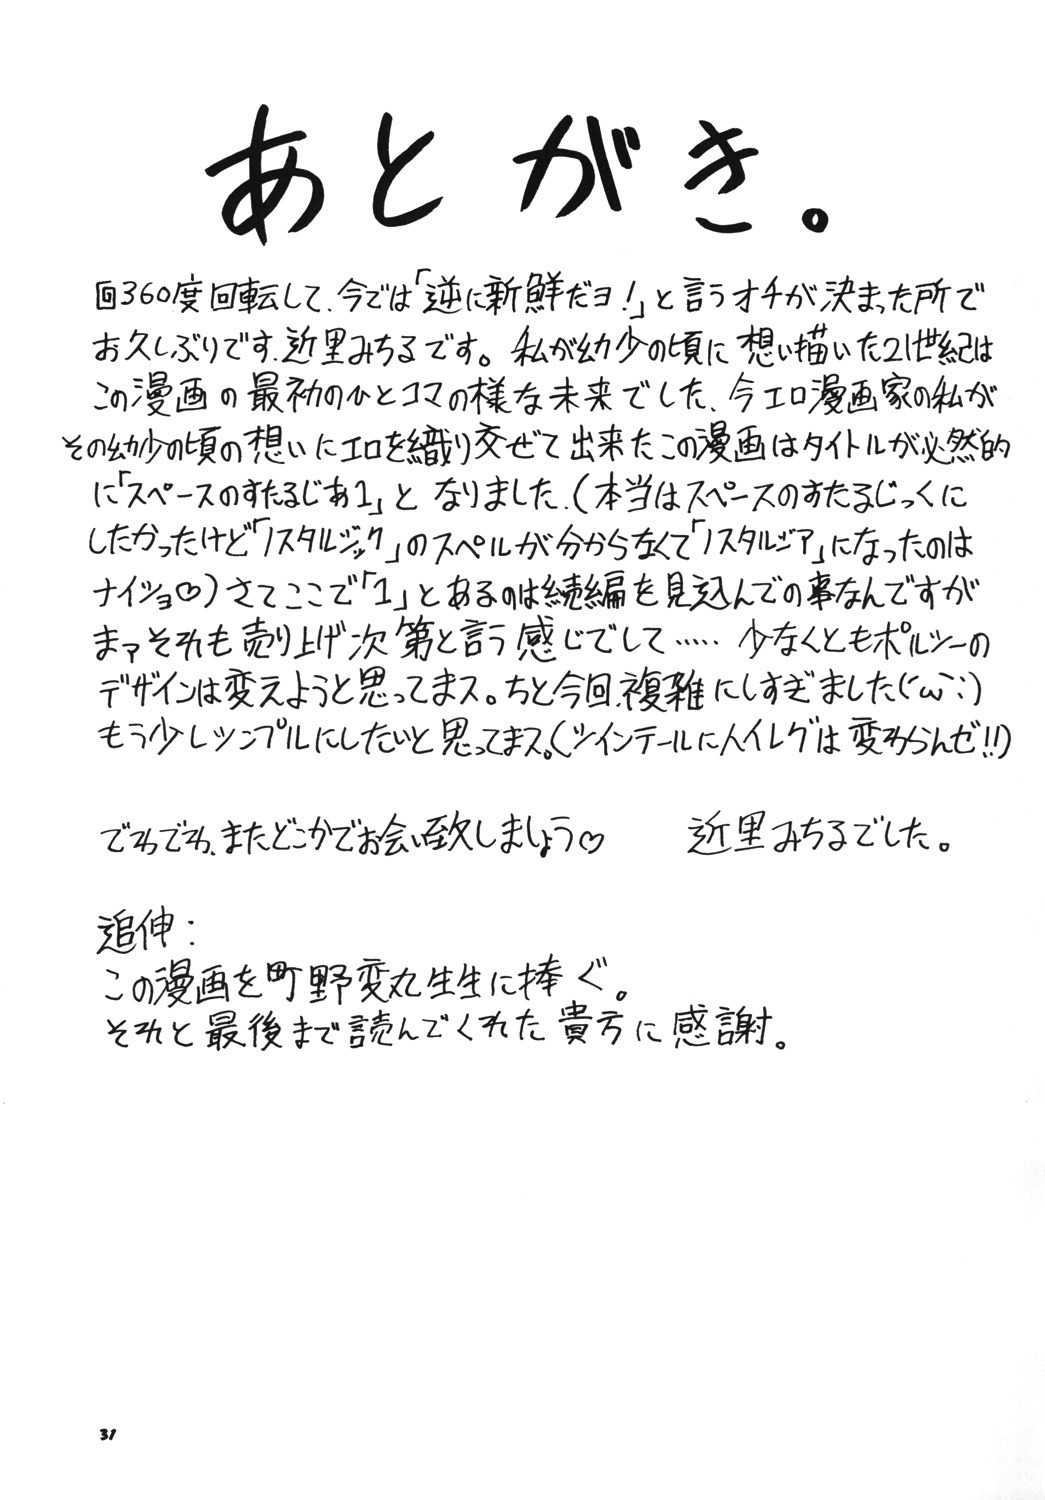 あとがき。
回360度回転して、今では「逆に新鮮だヨ!」と言うオチが決まった所で
お久しぶりです、近里みちるです。私が幼少の頃に想い描いた21世紀は
この漫画の最初のひとコマの様な未来でした、今エロ漫画家の私が
その幼少の頃の想いにエロを織り交ぜて出来たこの漫画はタイトルが必然的
に「スペースのすたるじあ1」となりました、(本当はスペースのすたるじっくに
したかったけど「ノスタルジック」のスペルが分からなくて「ノスタルジア」になったのは
ナイショ♡)さてここで「1」とあるのは続編を見込んでの事なんですが
まァそれも売り上げ次第と言う感じでして……少なくともポルシーの
デザインは変えようと思ってまス。ちと今回、複雑にしすぎました(´ω`;)
もう少しシンプルにしたいと思ってまス。(ツインテールにハイレグは変わらんゼ!!)
でわでわ、またどこかでお会い致しましょう♡ 近里みちるでした。
追伸:
この漫画を町野変丸生生に捧ぐ。
それと最後まで読んでくれた貴方に感謝。
31